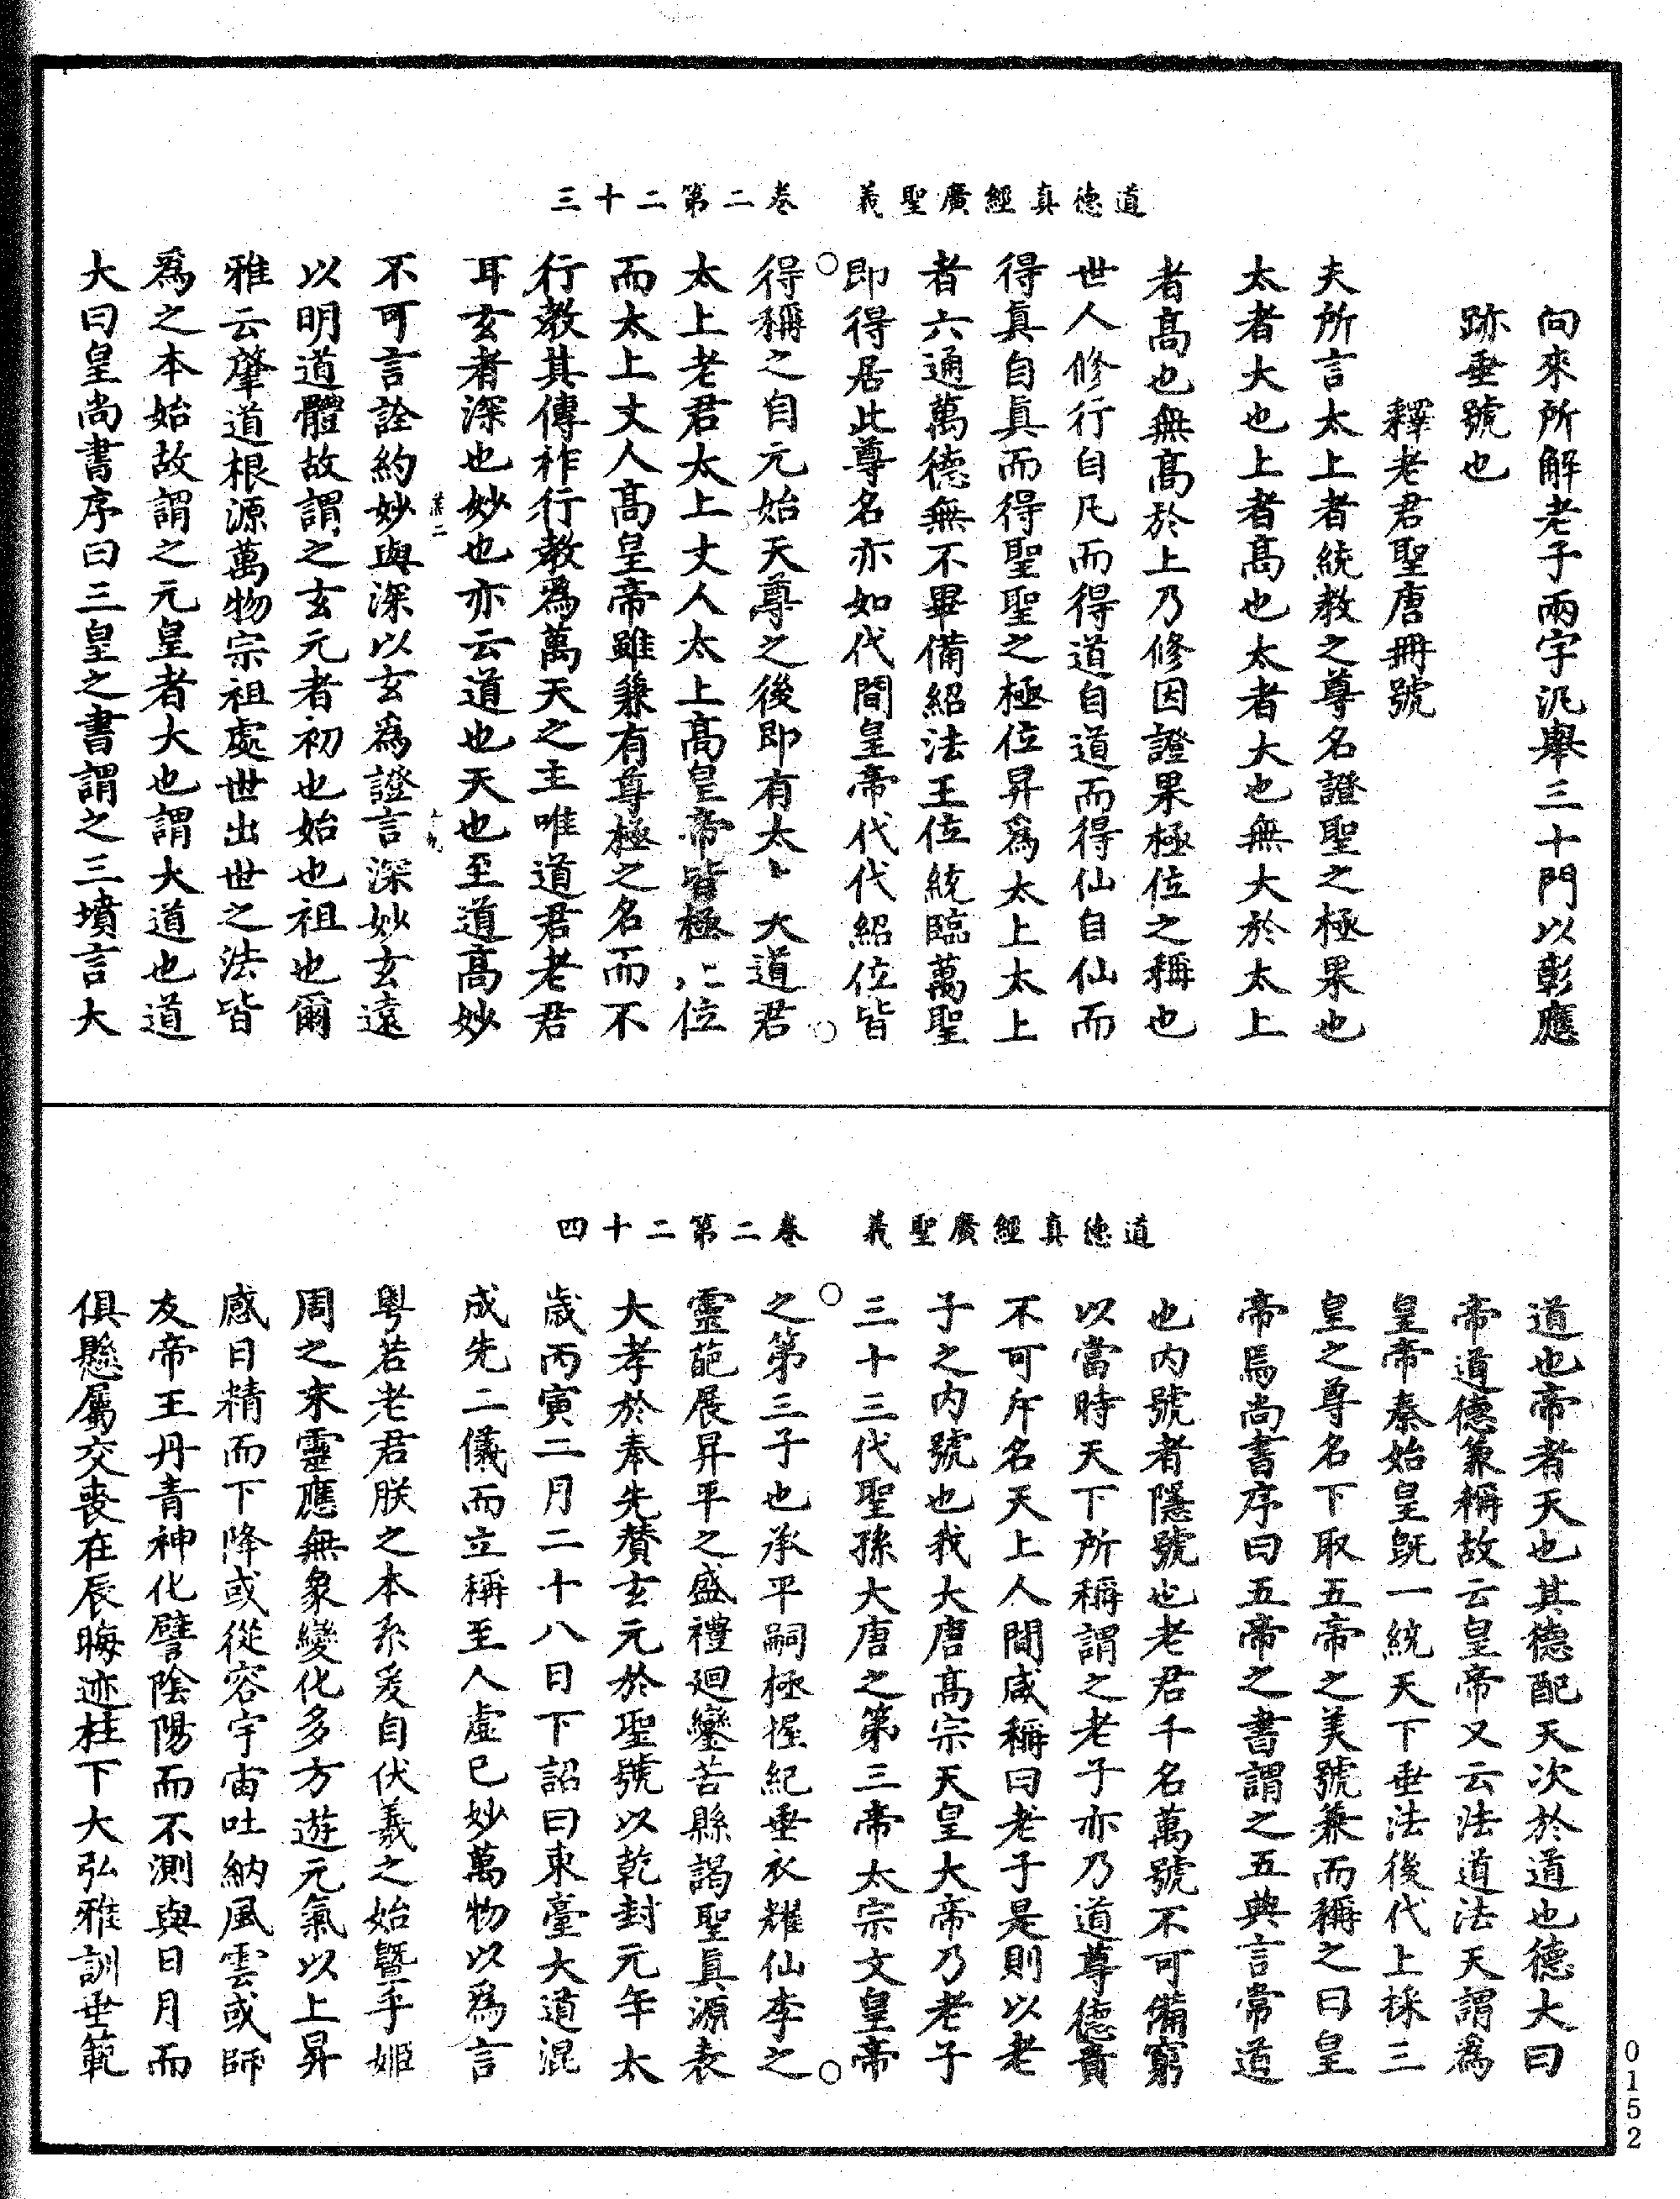 道德真經廣聖義　卷二第二十三
向來所解老子兩字汎舉三十門以彰應
跡垂號也
釋老君聖唐冊號
夫所言太上者統教之尊名證聖之極果也
太者大也上者高也太者大也無大於太上
者高也無高於上乃修因證果極位之稱也
世人修行自凡而得道自道而得仙自仙而
得真自真而得聖聖之極位昇為太上太上
者六通萬德無不畢備紹法王位統臨萬聖
即得居此尊名亦如代間皇帝代代紹位皆
得稱之自元始天尊之後即有太〻大道君
太上老君太上丈人太上高皇帝皆極〻位
而太上丈人高皇帝雖兼有尊極之名而不
行教其傳祚行教為萬天之主唯道君老君
耳玄者深也妙也亦云道也天也至道高妙
不可言詮約妙與深以玄為證言深妙玄遠
以明道體故謂之玄元者初也始也祖也爾
雅云肇道根源萬物宗祖處世出世之法皆
為之本始故謂之元皇者大也謂大道也道
大曰皇尚書序曰三皇之書謂之三墳言大
道德真經廣聖義　卷二第二十四
道也帝者天也其德配天次於道也德大曰
帝道德象稱故云皇帝又云法道法天謂為
皇帝秦始皇既一統天下垂法後代上採三
皇之尊名下取五帝之美號兼而稱之曰皇
帝焉尚書序曰五帝之書謂之五典言常道
也內號者隱號也老君千名萬號不可備窮
以當時天下所稱謂之老子亦乃道尊德貴
不可斥名天上人間咸稱曰老子是則以老
子之內號也我大唐高宗天皇大帝乃老子
三十三代聖孫大唐之第三帝太宗文皇帝
之第三子也承平嗣極握紀垂衣耀仙李之
靈葩展昇平之盛禮迴鑾苦縣謁聖真源表
大孝於奉先贊玄元於聖號以乾封元年太
歲丙寅二月二十八日下詔曰東臺大道混
成先二儀而立稱至人虛已妙萬物以為言
粵若老君朕之本系爰自伏羲之始暨乎姬
周之末靈應無象變化多方遊元氣以上昇
感日精而下降或從容宇宙吐納風雲或師
友帝王丹青神化譬陰陽而不測與日月而
俱懸屬交喪在辰晦迹柱下大弘雅訓垂範
0152